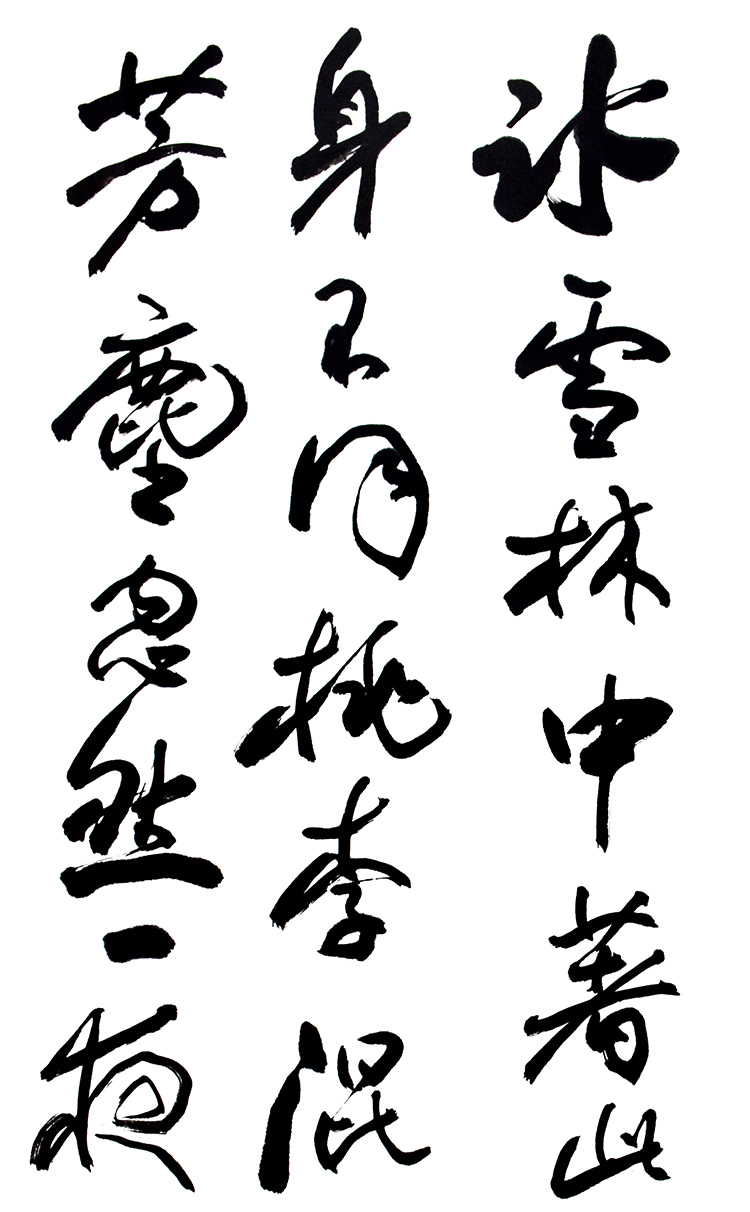 冰雪林中著此
身不同桃李混
芳塵忽然一夜